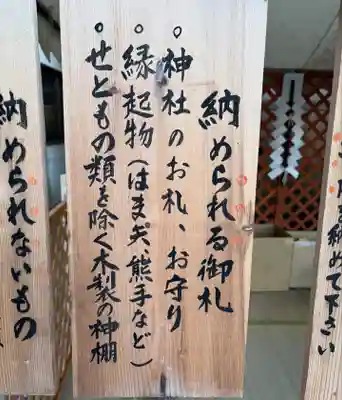 を納めて下さい
納められる御札
○神社のお札、お守り
○縁起物(はま矢、熊手など)
○せともの類を除く木製の神棚
納められないもの